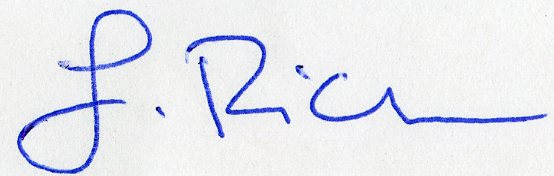 L. Rich